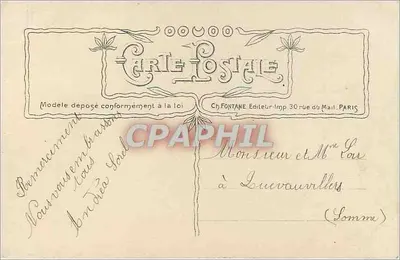 CARTE POSTALE
Modèle déposé conformément à la loi
Ch. FONTANE, Editeur-Imp. 30 rue du Mail, PARIS
CPAPHIL
Remerciement
Nous vous embrassons
tous
Andréa
Monsieur et Mme
à Quevauvillers
(Somme)